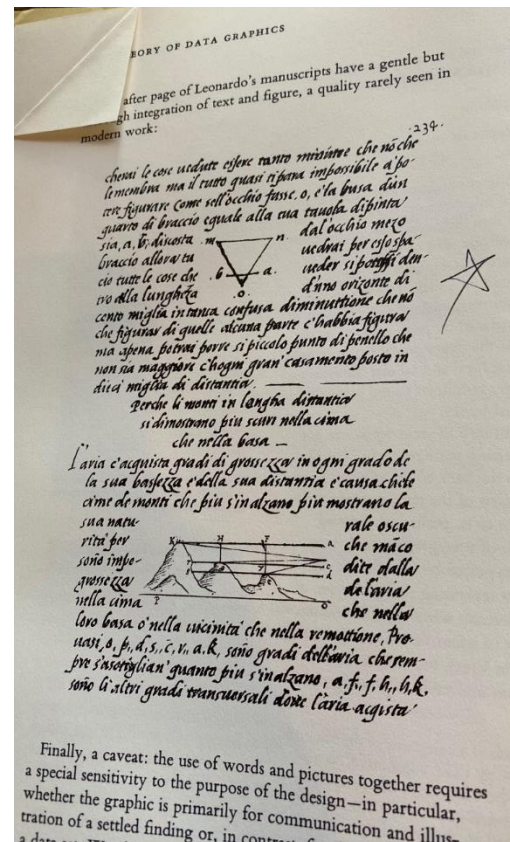 EORY OF DATA GRAPHICS
after page of Leonardo's manuscripts have a gentle but
gh integration of text and figure, a quality rarely seen in
modern work:
·234·
cherai le cose uedute essere tanto minime che nō che
le membra ma il tutto quasi ti para impossibile a po-
tere figurare Come sell'occhio fusse. o, e la busa d'un
quarto di braccio eguale alla tua tauola dipinta
sia, a, b, discosta
.m
n.
dal'occhio mezo
braccio allora tu
uedrai per esso spa-
cio tutte le cose che
.b
a.
ueder si possi den-
tro alla lungheza
.o.
d'uno orizonte di
cento miglia in tanca confusa diminuttione che nō
che figurar di quelle alcuna parte c'habbia figura
ma apena potrai porre si piccolo punto di penello che
non sia maggiore c'hogni gran casamento posto in
dieci miglia di distantia.
Perche li monti in longha distantia
si dimostrano piu scuri nella cima
che nella basa _
L'aria c'acquista gradi di grossezza in ogni grado de
la sua bassezza e della sua distantia e causa chile
cime de monti che piu s'inalzano piu mostrano la
sua natu-
rale oscu-
rità per
K
H
F
A
che māco
sono impe-
dite dalla
grossezza
de l'aria
nella cima
P
O
che nella
loro basa o nella uicinità che nella remottione, Pro-
uasi, o, p, d, s, c, r, a, k, sono gradi dell'aria che sem-
pre s'asotiglian' quanto piu s'inalzano, a, f, f, h, h, k,
sono li altri gradi transuersali doue l'aria acqista
Finally, a caveat: the use of words and pictures together requires
a special sensitivity to the purpose of the design—in particular,
whether the graphic is primarily for communication and illus-
tration of a settled finding or, in